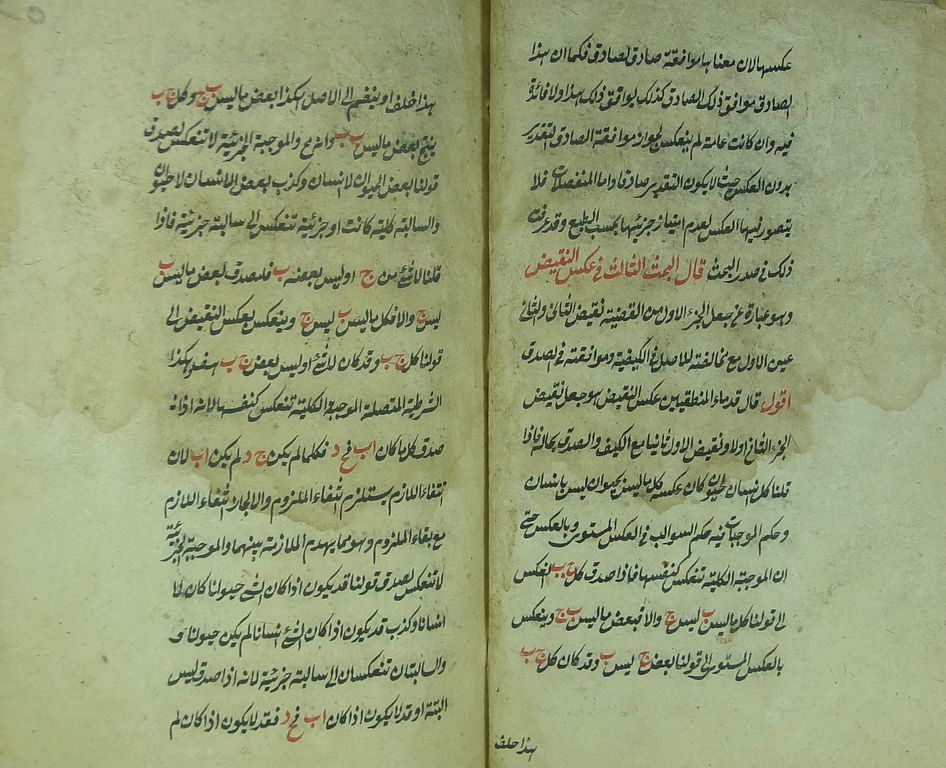 عكسها لان معناها موافقة صادق لصادق فكما ان هذا
الصادق موافق ذلك الصادق كذلك يوافق ذلك هذا ولا فائدة
فيه وان كانت عامة لم ينعكس لجواز موافقة الصادق التقدير
بدون العكس حيث لا يكون التقدير صادقا واما المنفصلات فلا
يتصور فيها العكس لعدم امتياز جزئيها بحسب الطبع وقد عرفت
ذلك في صدر البحث قال البحث الثالث في عكس النقيض
وهو عبارة عن جعل الجزء الاول من القضية نقيض الثاني والثاني
عين الاول مع مخالفته للاصل في الكيفية وموافقته في الصدق
اقول قال قدماء المنطقيين عكس النقيض هو جعل نقيض
الجزء الثاني اولا ونقيض الاول ثانيا مع الكيف والصدق بحاله فاذا
قلنا كل انسان حيوان كان عكسه كل ما ليس بحيوان ليس بانسان
وحكم الموجبات فيه حكم السوالب في العكس المستوى وبالعكس حتى
ان الموجبة الكلية تنعكس كنفسها فاذا صدق كل ج ب انعكس
الى قولنا كل ما ليس ب ليس ج والا فبعض ما ليس ب ج وينعكس
بالعكس المستوى الى قولنا بعض ج ليس ب وقد كان كل ج ب
هذا خلف
هذا خلف او ينضم الى الاصل هكذا بعض ما ليس ب ج وكل ج ب
ينتج بعض ما ليس ب ب وانه مح والموجبة الجزئية لا تنعكس لصدق
قولنا بعض الحيوان لا انسان وكذب بعض الانسان لا حيوان
والسالبة كلية كانت او جزئية تنعكس الى سالبة جزئية فاذا
قلنا لا شئ من ج او ليس بعضه ب فليصدق بعض ما ليس ب
ليس ج والا فكل ما ليس ب ليس ج وينعكس بعكس النقيض الى
قولنا كل ج ب وقد كان لا شئ او ليس بعض ج ب هف وهكذا
الشرطية المتصلة الموجبة الكلية تنعكس كنفسها لانه اذا
صدق كلما كان اب فج د فكلما لم يكن ج د لم يكن اب لان
انتفاء اللازم يستلزم انتفاء الملزوم والا لجاز انتفاء اللازم
مع بقاء الملزوم وهو مما يهدم الملازمة بينهما والموجبة الجزئية
لا تنعكس لصدق قولنا قد يكون اذا كان الشئ حيوانا كان لا
انسانا وكذب قد يكون اذا كان الشئ انسانا لم يكن حيوانا
والسالبتان تنعكسان الى سالبة جزئية لانه اذا صدق ليس
البتة او قد لا يكون اذا كان اب فج د فقد لا يكون اذا كان لم